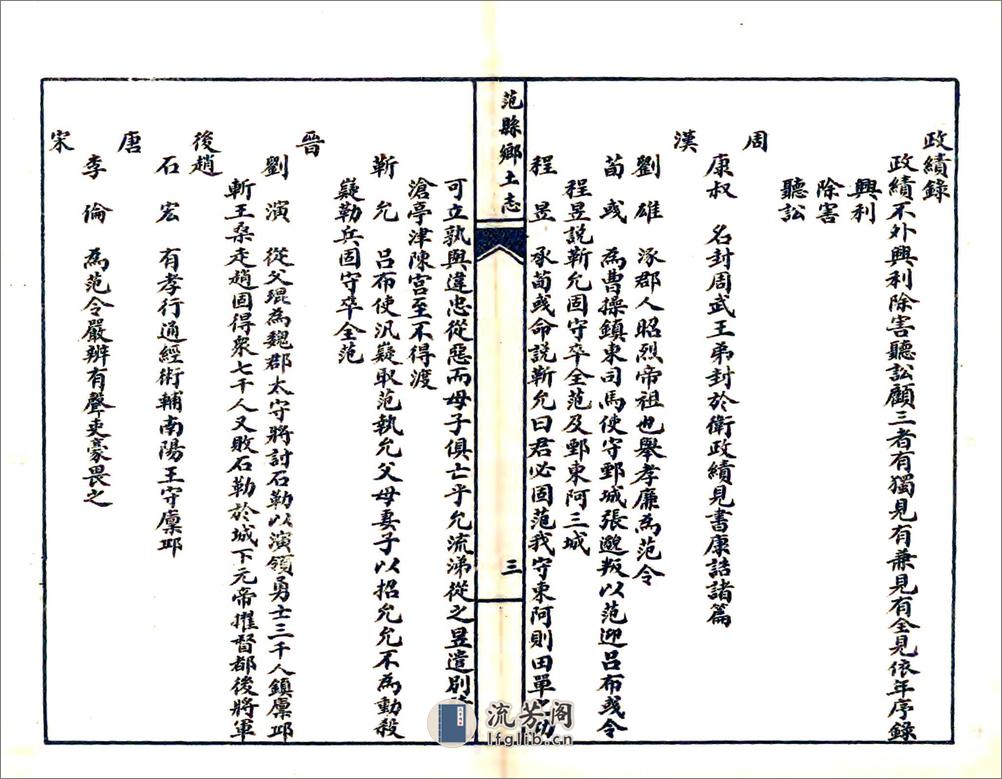 政績錄
政績不外興利除害聽訟顧三者有獨見有兼見有全見依年序錄
興利
除害
聽訟
周
康叔 名封周武王弟封於衛政績見書康誥諸篇
漢
劉雄 涿郡人昭烈帝祖也舉孝廉為范令
荀彧 為曹操鎮東司馬使守鄄城張邈叛以范迎呂布彧令
程昱說靳允固守卒全范及鄄東阿三城
程昱 承荀彧命說靳允曰君必固范我守東阿則田單之功
范縣鄉土志
三
可立孰與違忠從惡而母子俱亡乎允流涕從之昱遣別
滄亭津陳宮至不得渡
靳允 呂布使汎嶷取范執允父母妻子以招允允不為動殺
嶷勒兵固守卒全范
晉
劉演 從父琨為魏郡太守將討石勒以演領勇士三千人鎮廩邱
斬王桑走趙固得衆七千人又敗石勒於城下元帝擢督都後將軍
後趙
石宏 有孝行通經術輔南陽王守廩邱
唐
李倫 為范令嚴辨有聲吏豪畏之
宋
流芳阁
lfglib.cn